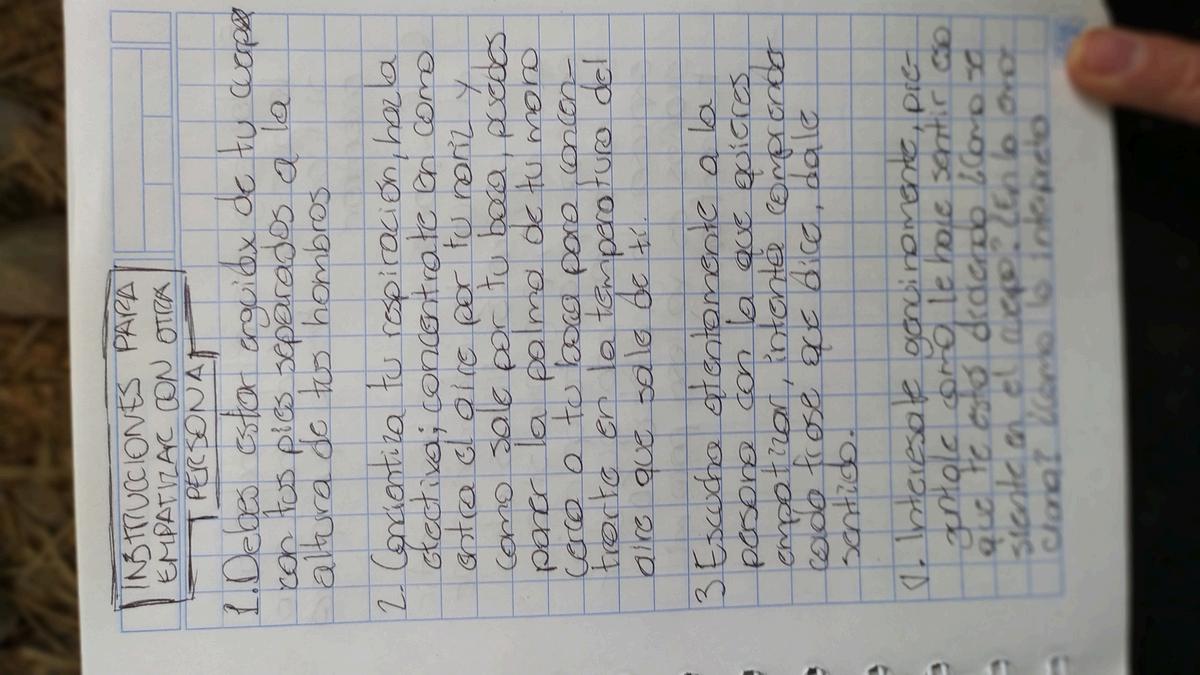 INSTRUCCIONES PARA
EMPATIZAR CON OTRA
PERSONA
1. Debes estar erguidx de tu cuerpo
con tus pies separados a la
altura de tus hombros
2. Concientiza tu respiración, hazla
efectiva; concentrate en como
entra el aire por tu nariz y
como sale por tu boca, puedes
poner la palma de tu mano
cerca a tu boca para concen-
trarte en la temperatura del
aire que sale de ti.
3 Escucha atentamente a la
persona con la que quieres
empatizar, intenta comprender
cada frase que dice, dale
sentido.
Interesate genuinamente, pre-
guntale como le hace sentir eso
que te está diciendo ¿Como se
siente en el cuerpo? ¿En la
¿Como lo interpreta